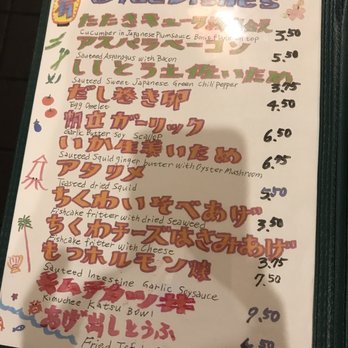 たたきキュウリ
Cucumber in Japanese Plumsauce Bonito flake on top
3.50
アスパラベーコン
Sauteed Asparagus with Bacon
5.50
ししとう土佐いため
Sauteed Sweet Japanese Green Chili Pepper
3.75
だし巻き卵
Egg Omelet
4.50
帆立ガーリック
Garlic butter Soy Scallop
6.50
いか生姜いため
Sauteed Squid ginger butter with Oyster Mushroom
6.75
アタリメ
Toasted dried Squid
5.50
ちくわいそべあげ
Fishcake fritter with dried Seaweed
3.50
ちくわチーズはさみあげ
Fishcake fritter with Cheese
3.75
もつホルモン焼
Sauteed Intestine Garlic Soysauce
7.50
キムチカツ丼
Kimuchee Katsu Bowl
9.50
あげ出しとうふ
Fried Tofu
4.50